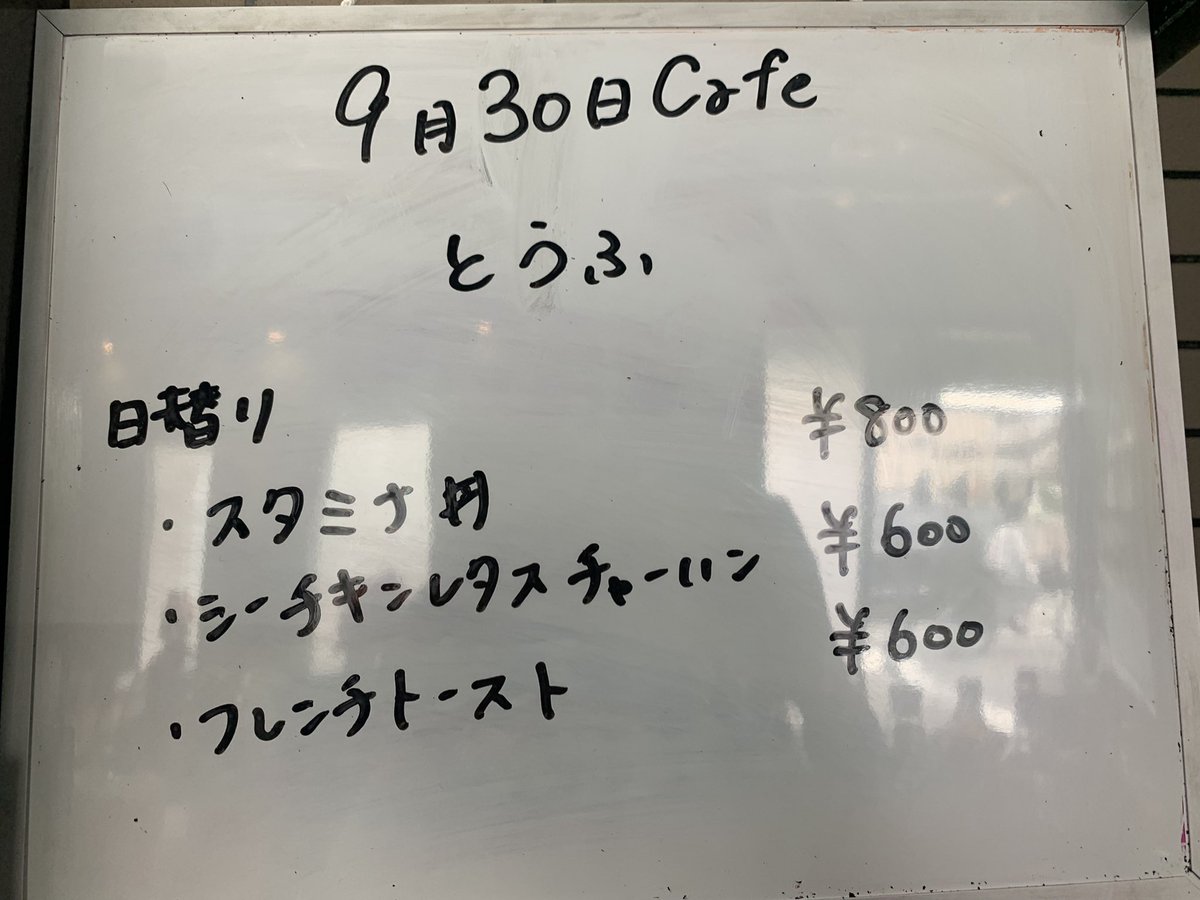 9月30日Cafe
とうふ
日替り
・スタミナ丼 ¥800
・シーチキンレタスチャーハン ¥600
・フレンチトースト ¥600